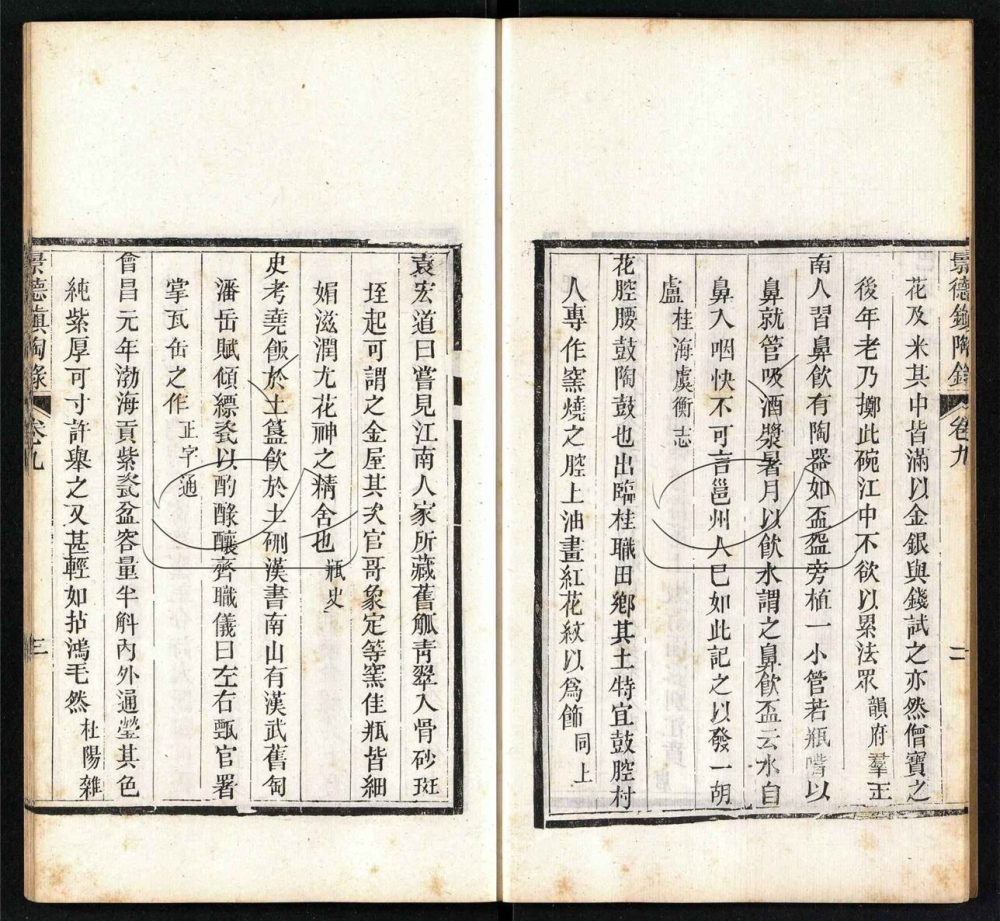 景德鎭陶錄 卷九 二
花及米其中皆滿以金銀與錢試之亦然僧寶之
後年老乃擲此碗江中不欲以累法眾 韻府羣玉
南人習鼻飮有陶器如盃盌旁植一小管若瓶嘴以
鼻就管吸酒漿暑月以飮水謂之鼻飮盃云水自
鼻入咽快不可言邕州人已如此記之以發一胡
盧 桂海虞衡志
花腔腰鼓陶鼓也出臨桂職田鄕其土特宜鼓腔村
人專作窯燒之腔上油畫紅花紋以爲飾 同上
袁宏道曰嘗見江南人家所藏舊觚靑翠入骨砂斑
垤起可謂之金屋其次官哥象定等窯佳瓶皆細
媚滋潤尢花神之精舍也 瓶史
史考堯飯於土簋飮於土硎漢書南山有漢武舊匋
潘岳賦傾縹瓷以酌醁釀齊職儀曰左右甄官署
掌瓦缶之作 正字通
會昌元年渤海貢紫瓷盆容量半斛內外通瑩其色
純紫厚可寸許舉之又甚輕如拈鴻毛然 杜陽雜
景德鎭陶錄 卷九 三